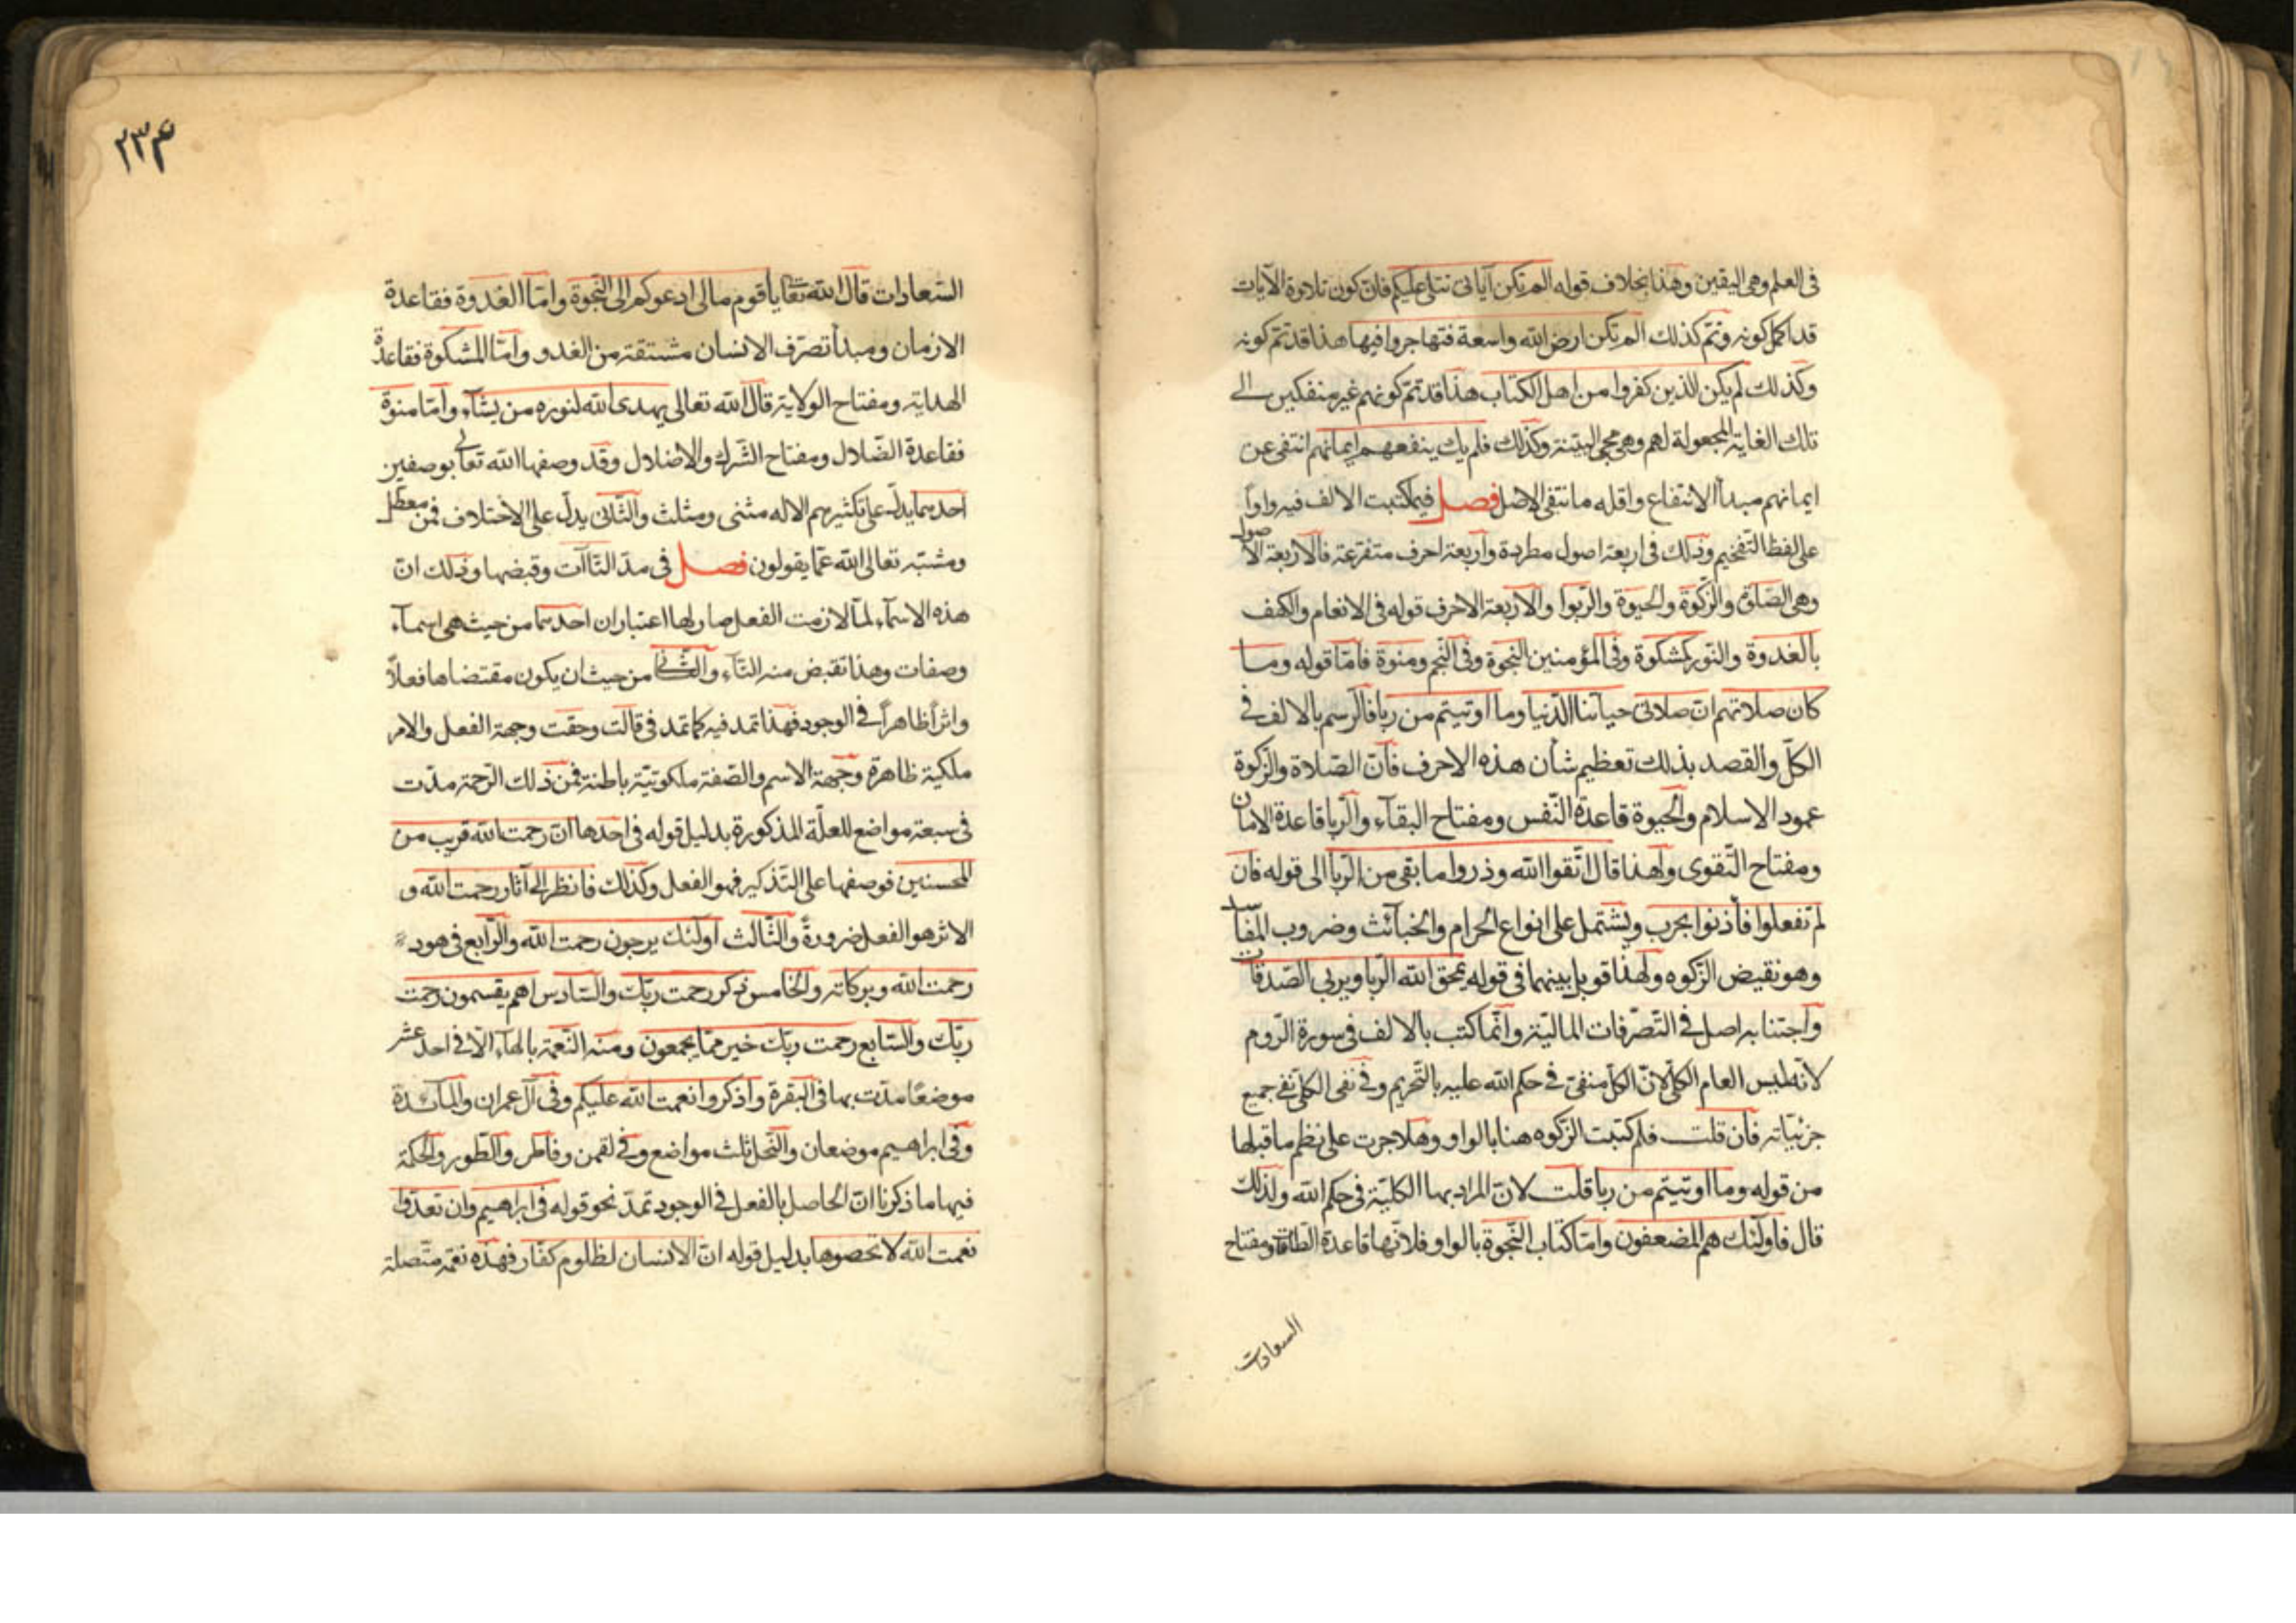 فى العلم وهى اليقين وهذا بخلاف قوله الم تكن آياتى تتلى عليكم فان كون تلاوة الآيات
قد اكمل كونه وتم كذلك الم تكن ارض الله واسعة فتهاجروا فيها هذا قد تم كونه
وكذلك لم يكن الذين كفروا من اهل الكتاب هذا قد تم كونهم غير منفكين الى
تلك الغاية المجعولة لهم وهى مجئ البينة وكذلك فلم يك ينفعهم ايمانهم انتفى عن
ايمانهم مبدأ الانتفاع واقله ما نتفى الاصل فصل فيما كتبت الالف فيه واواً
على لفظ التفخيم وذلك فى اربعة اصول مطردة واربعة احرف متفرعة فالاربعة الاصول
وهى الصلوة والزكوة والحيوة والربوا والاربعة الاحرف قوله فى الانعام والكهف
بالغدوة والنور كمشكوة وفى المؤمنين النجوة وفى النجم ومنوة فاما قوله وما
كان صلاتهم ان صلاتى حياتنا الدنيا وما اوتيتم من ربا فالرسم بالالف فى
الكل والقصد بذلك تعظيم شأن هذه الاحرف فان الصلاة والزكوة
عمود الاسلام والحيوة قاعدة النفس ومفتاح البقاء والربا قاعدة الامان
ومفتاح التقوى ولهذا قال اتقوا الله وذروا ما بقى من الربا الى قوله فان
لم تفعلوا فأذنوا بحرب ويشتمل على انواع الحرام والخبائث وضروب المفاسد
وهو نقيض الزكوه ولهذا قوبل بينهما فى قوله يمحق الله الربا ويربى الصدقات
واجتنابه اصل فى التصرفات المالية وانما كتب بالالف فى سورة الروم
لانه ليس العام الكلى لان الكل منفى فى حكم الله عليه بالتحريم وفى نفى الكلى نفى جميع
جزئياته فان قلت فلم كتبت الزكوه هنا بالواو وهلا جرت على نظم ما قبلها
من قوله وما اوتيتم من ربا قلت لان المراد بها الكلية فى حكم الله ولذلك
قال فاولئك هم المضعفون واما كتاب النجوة بالواو فلانها قاعدة الطاقات ومفتاح
السعادات
٢٣۴
السعادات قال الله تعا يا قوم مالى ادعوكم الى النجوة واما الغدوة فقاعدة
الازمان ومبدأ تصرف الانسان مشتقة من الغدو واما المشكوة فقاعدة
الهداية ومفتاح الولاية قال الله تعالى يهدى الله لنوره من يشاء واما منوة
فقاعدة الضلال ومفتاح الشرك والاضلال وقد وصفها الله تعالى بوصفين
احدهما يدل على تكثيرهم الاله مثنى ومثلث والثانى يدل على الاختلاف فمن معطل
ومشبه تعالى الله عما يقولون فصل فى مد التاآت وقبضها وذلك ان
هذه الاسماء لما لازمت الفعل صار لها اعتباران احدهما من حيث هى اسماء
وصفات وهذا تقبض منه التاء والثانى من حيث ان يكون مقتضاها فعلاً
واثراً ظاهراً فى الوجود فهذا تمد فيه كما تمد فى قالت وحقت وجهة الفعل والامر
ملكية ظاهرة وجهة الاسم والصفة ملكوتية باطنة فمن ذلك الرحمة مدت
فى سبعة مواضع للعلة المذكورة بدليل قوله فى احدها ان رحمت الله قريب من
المحسنين فوصفها على التذكير فهو الفعل وكذلك فانظر الى آثار رحمت الله و
الاثر هو الفعل ضرورةً والثالث اولئك يرجون رحمت الله والرابع فى هود
رحمت الله وبركاته والخامس ذكر رحمت ربك والسادس اهم يقسمون رحمت
ربك والسابع رحمت ربك خير مما يجمعون ومنه النعمة بالهاء الا فى احد عشر
موضعًا مدت بها فى البقرة واذكروا نعمت الله عليكم وفى آل عمران والمائدة
وفى ابراهيم موضعان والنحل ثلث مواضع وفى لقمن وفاطر والطور والحكمة
فيها ما ذكرنا ان الحاصل بالفعل فى الوجود تمد نحو قوله فى ابراهيم وان تعدوا
نعمت الله لا تحصوها بدليل قوله ان الانسان لظلوم كفار فهذه نعمة متصلة